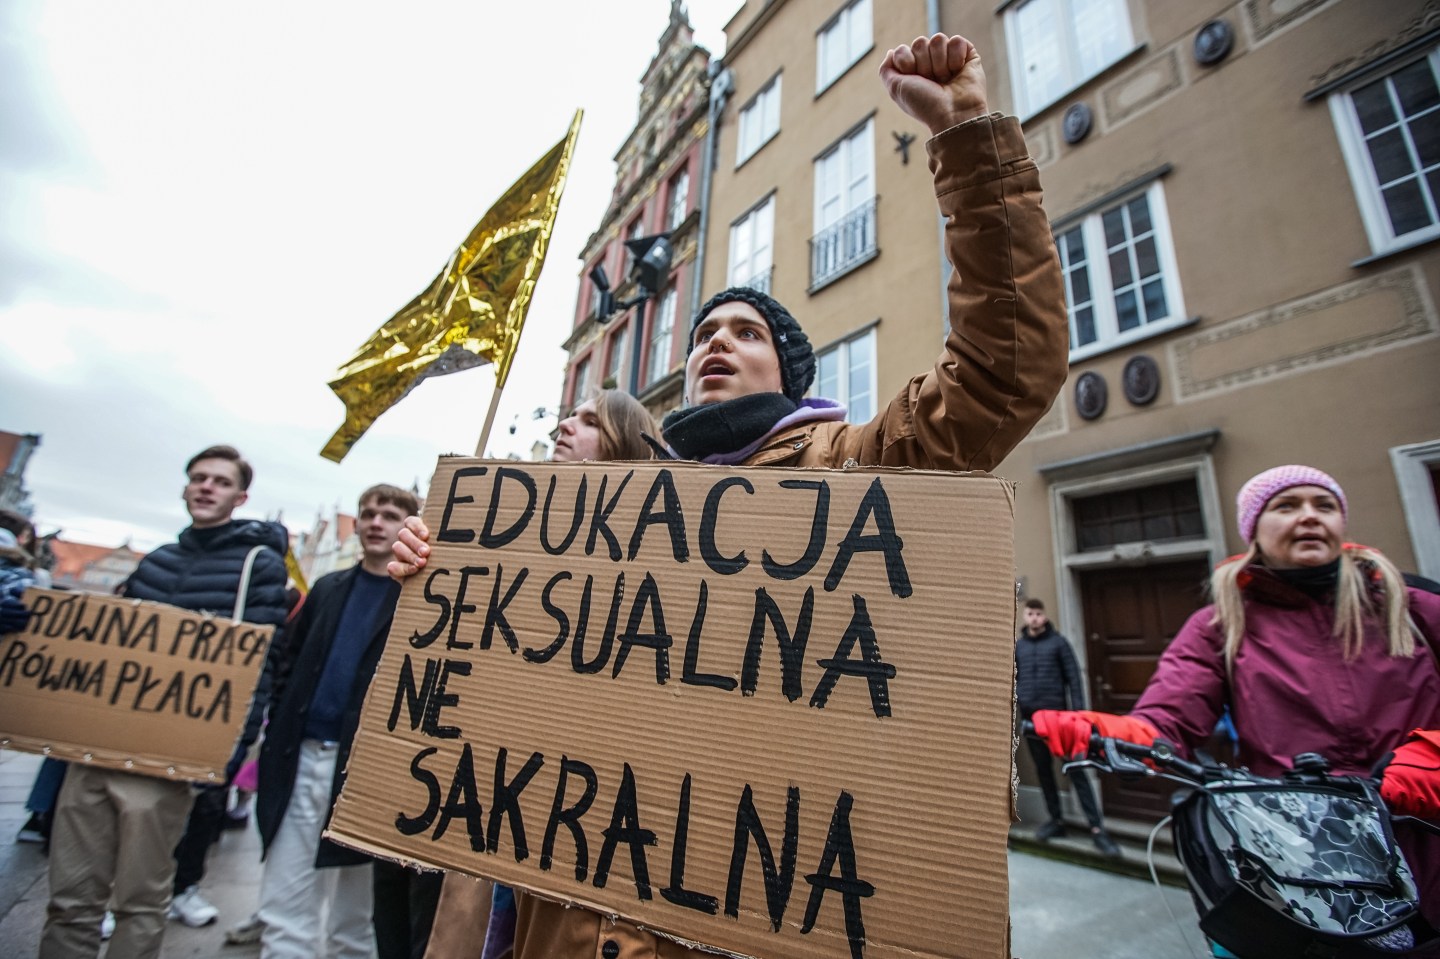 RÓWNA PRACA
RÓWNA PŁACA
EDUKACJA
SEKSUALNA
NIE
SAKRALNA